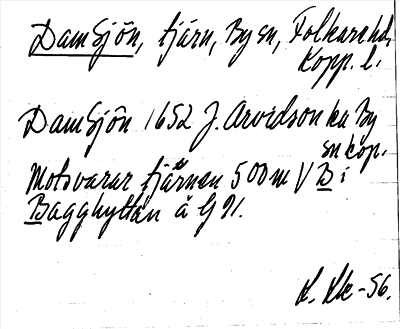 DamSjön, tjärn, By sn, Folkare hd,
Kopp. l.
DamSjön 1652 J. Arvidson ka By
sn köp.
Motsvarar tjärnen 500 m V B i
Bagghyttan å G 91.
K. -56.